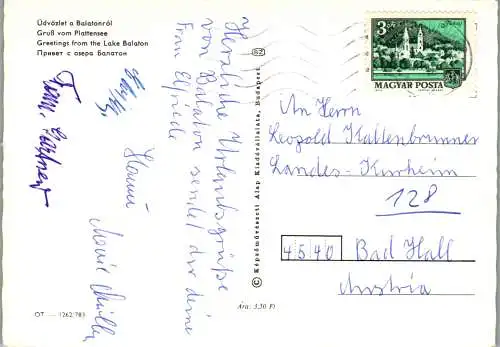 Üdvözlet a Balatonról
Gruß vom Plattensee
Greetings from the Lake Balaton
Привет с озера Балатон
Herzliche Urlaubsgrüße
vom Balaton sendet dir deine
Frau Elfriede
Hanni
Marie Müller
OT — 1262/783
Ára: 3,20 Ft
© Képzőművészeti Alap Kiadóvállalata, Budapest
SZ
3 Ft
MAGYAR POSTA
An Herrn
Leopold Kaltenbrunner
Landes-Kurheim
128
4540 Bad Hall
Austria